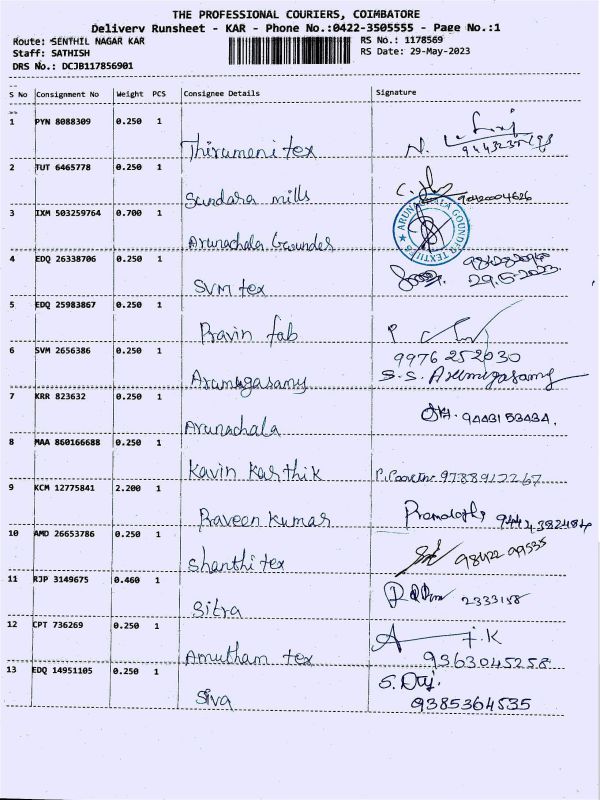 THE PROFESSIONAL COURIERS, COIMBATORE
Delivery Runsheet - KAR - Phone No.:0422-3505555 - Page No.:1
Route: SENTHIL NAGAR KAR RS No.: 1178569
Staff: SATHISH RS Date: 29-May-2023
DRS No.: DCJB117856901
S No Consignment No Weight PCS Consignee Details Signature
1 PYN 8088309 0.250 1
Thirumani tex N.
2 TUT 6465778 0.250 1
Sundara mills 90420004626
3 IXM 503259764 0.700 1
Arunachala Gounder
ARUNACHALA GOUNDER TEXTILES
4 EDQ 26338706 0.250 1
SVM tex 29.5.2023.
5 EDQ 25983867 0.250 1
Pravin fab P
6 SVM 2656386 0.250 1 9976252030
Arumugasamy S.S. Arumugasamy
7 KRR 823632 0.250 1
Arunachala 9443153434.
8 MAA 860166688 0.250 1
Kavin Karthik 9788912267
9 KCM 12775841 2.200 1
Praveen kumar
10 AMD 26653786 0.250 1
Shanthi tex 98422 99535
11 RJP 3149675 0.460 1
Sitra 2333158
12 CPT 736269 0.250 1 F.K
Amutham tex 9363045258
13 EDQ 14951105 0.250 1 S.
Siva 9385364535